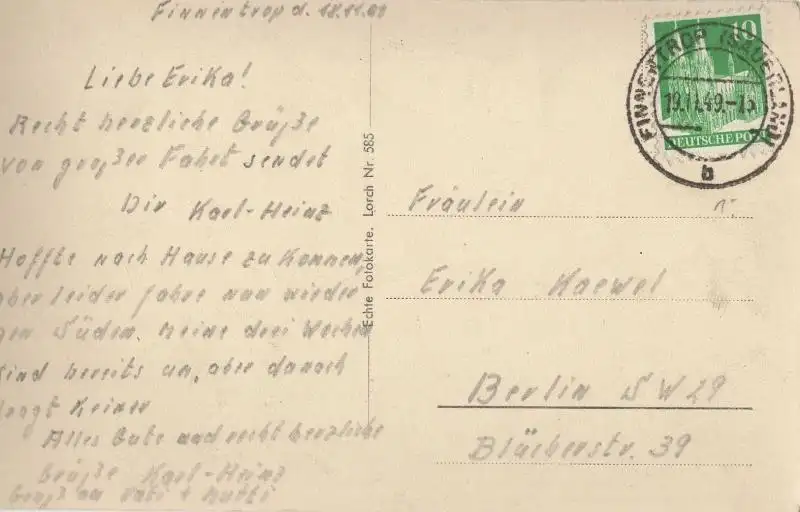 Finnentrop d. 18.11.49
Liebe Erika!
Recht herzliche Grüße
von großer Fahrt sendet
Dir Karl-Heinz
Hoffte nach Hause zu können,
aber leider fahre nun wieder
gen Süden. Meine drei Wochen
sind bereits um, aber danach
fragt keiner
Alles Gute und recht herzliche
Grüße Karl-Heinz
Gruß an Vati + Mutti
Echte Fotokarte. Lorch Nr. 585
10
DEUTSCHE POST
FINNENTROP (SAUERLAND)
19.11.49.-15
b
Fräulein
Erika Kaewel
Berlin SW 29
Blücherstr. 39